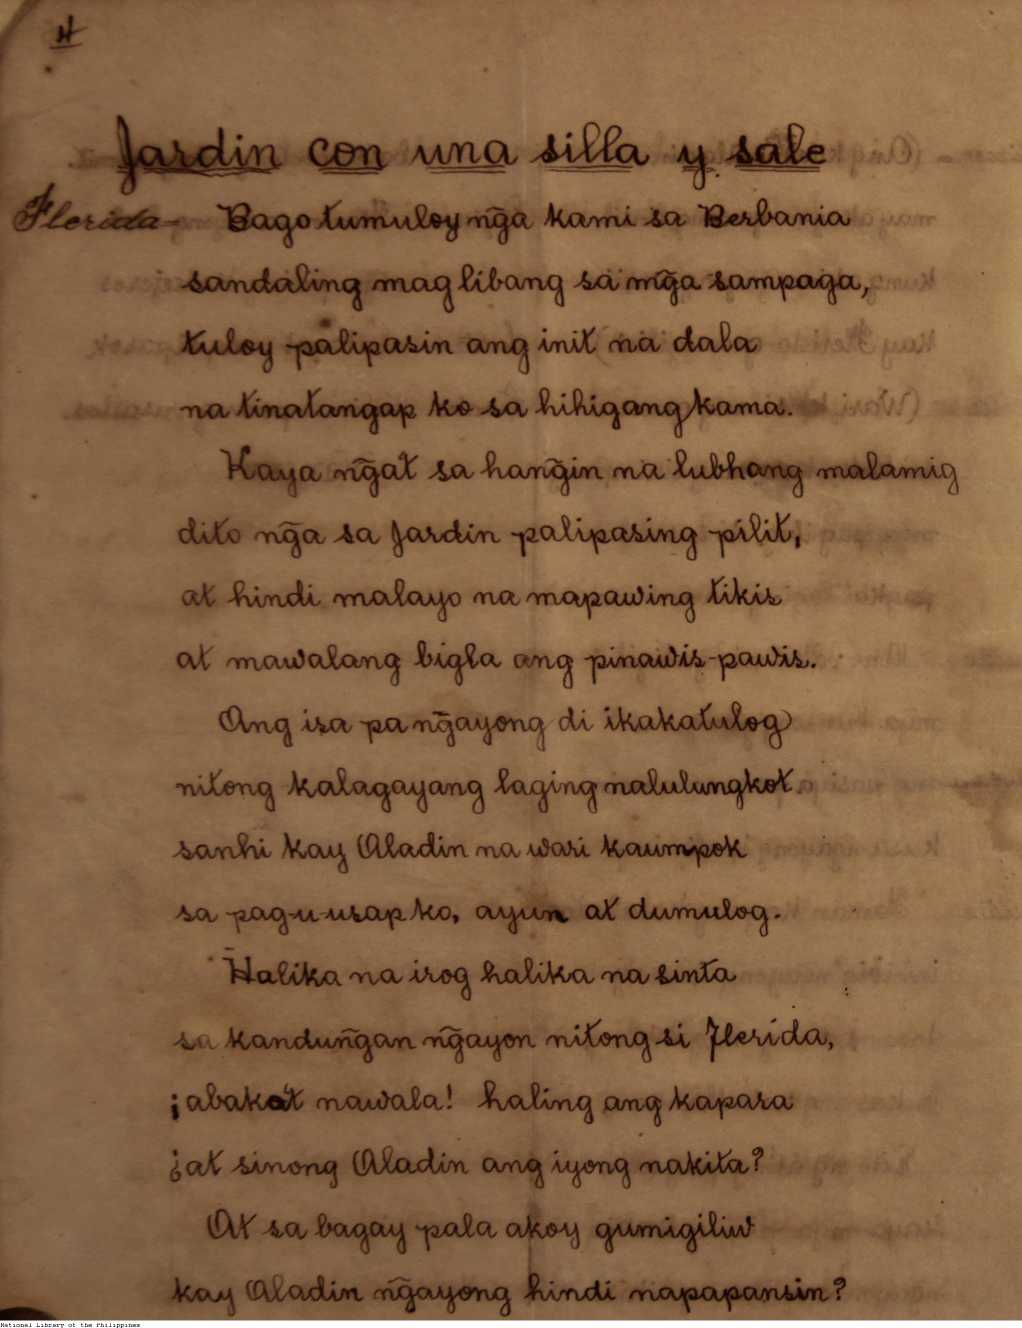 4
Jardin con una silla y sale
Flerida— Bago tumuloy ng̃a kami sa Berbania
sandaling maglibang sa mg̃a sampaga,
tuloy palipasin ang init na dala
na tinatangap ko sa hihigang kama.
Kaya ng̃at sa hang̃in na lubhang malamig
dito ng̃a sa Jardin palipasing pilit,
at hindi malayo na mapawing tikis
at mawalang bigla ang pinawis-pawis.
Ang isa pa ng̃ayong di ikakatulog
nitong kalagayang laging nalulungkot.
sanhi kay Aladin na wari kaumpok
sa pag-u-usap ko, ayun at dumulog.
Halika na irog halika na sinta
sa kandung̃an ng̃ayon nitong si Flerida,
¡abaka't nawala! haling ang kapara
¿at sinong Aladin ang iyong nakita?
At sa bagay pala akoy gumigiliw
kay Aladin ng̃ayong hindi napapansin?
National Library of the Philippines